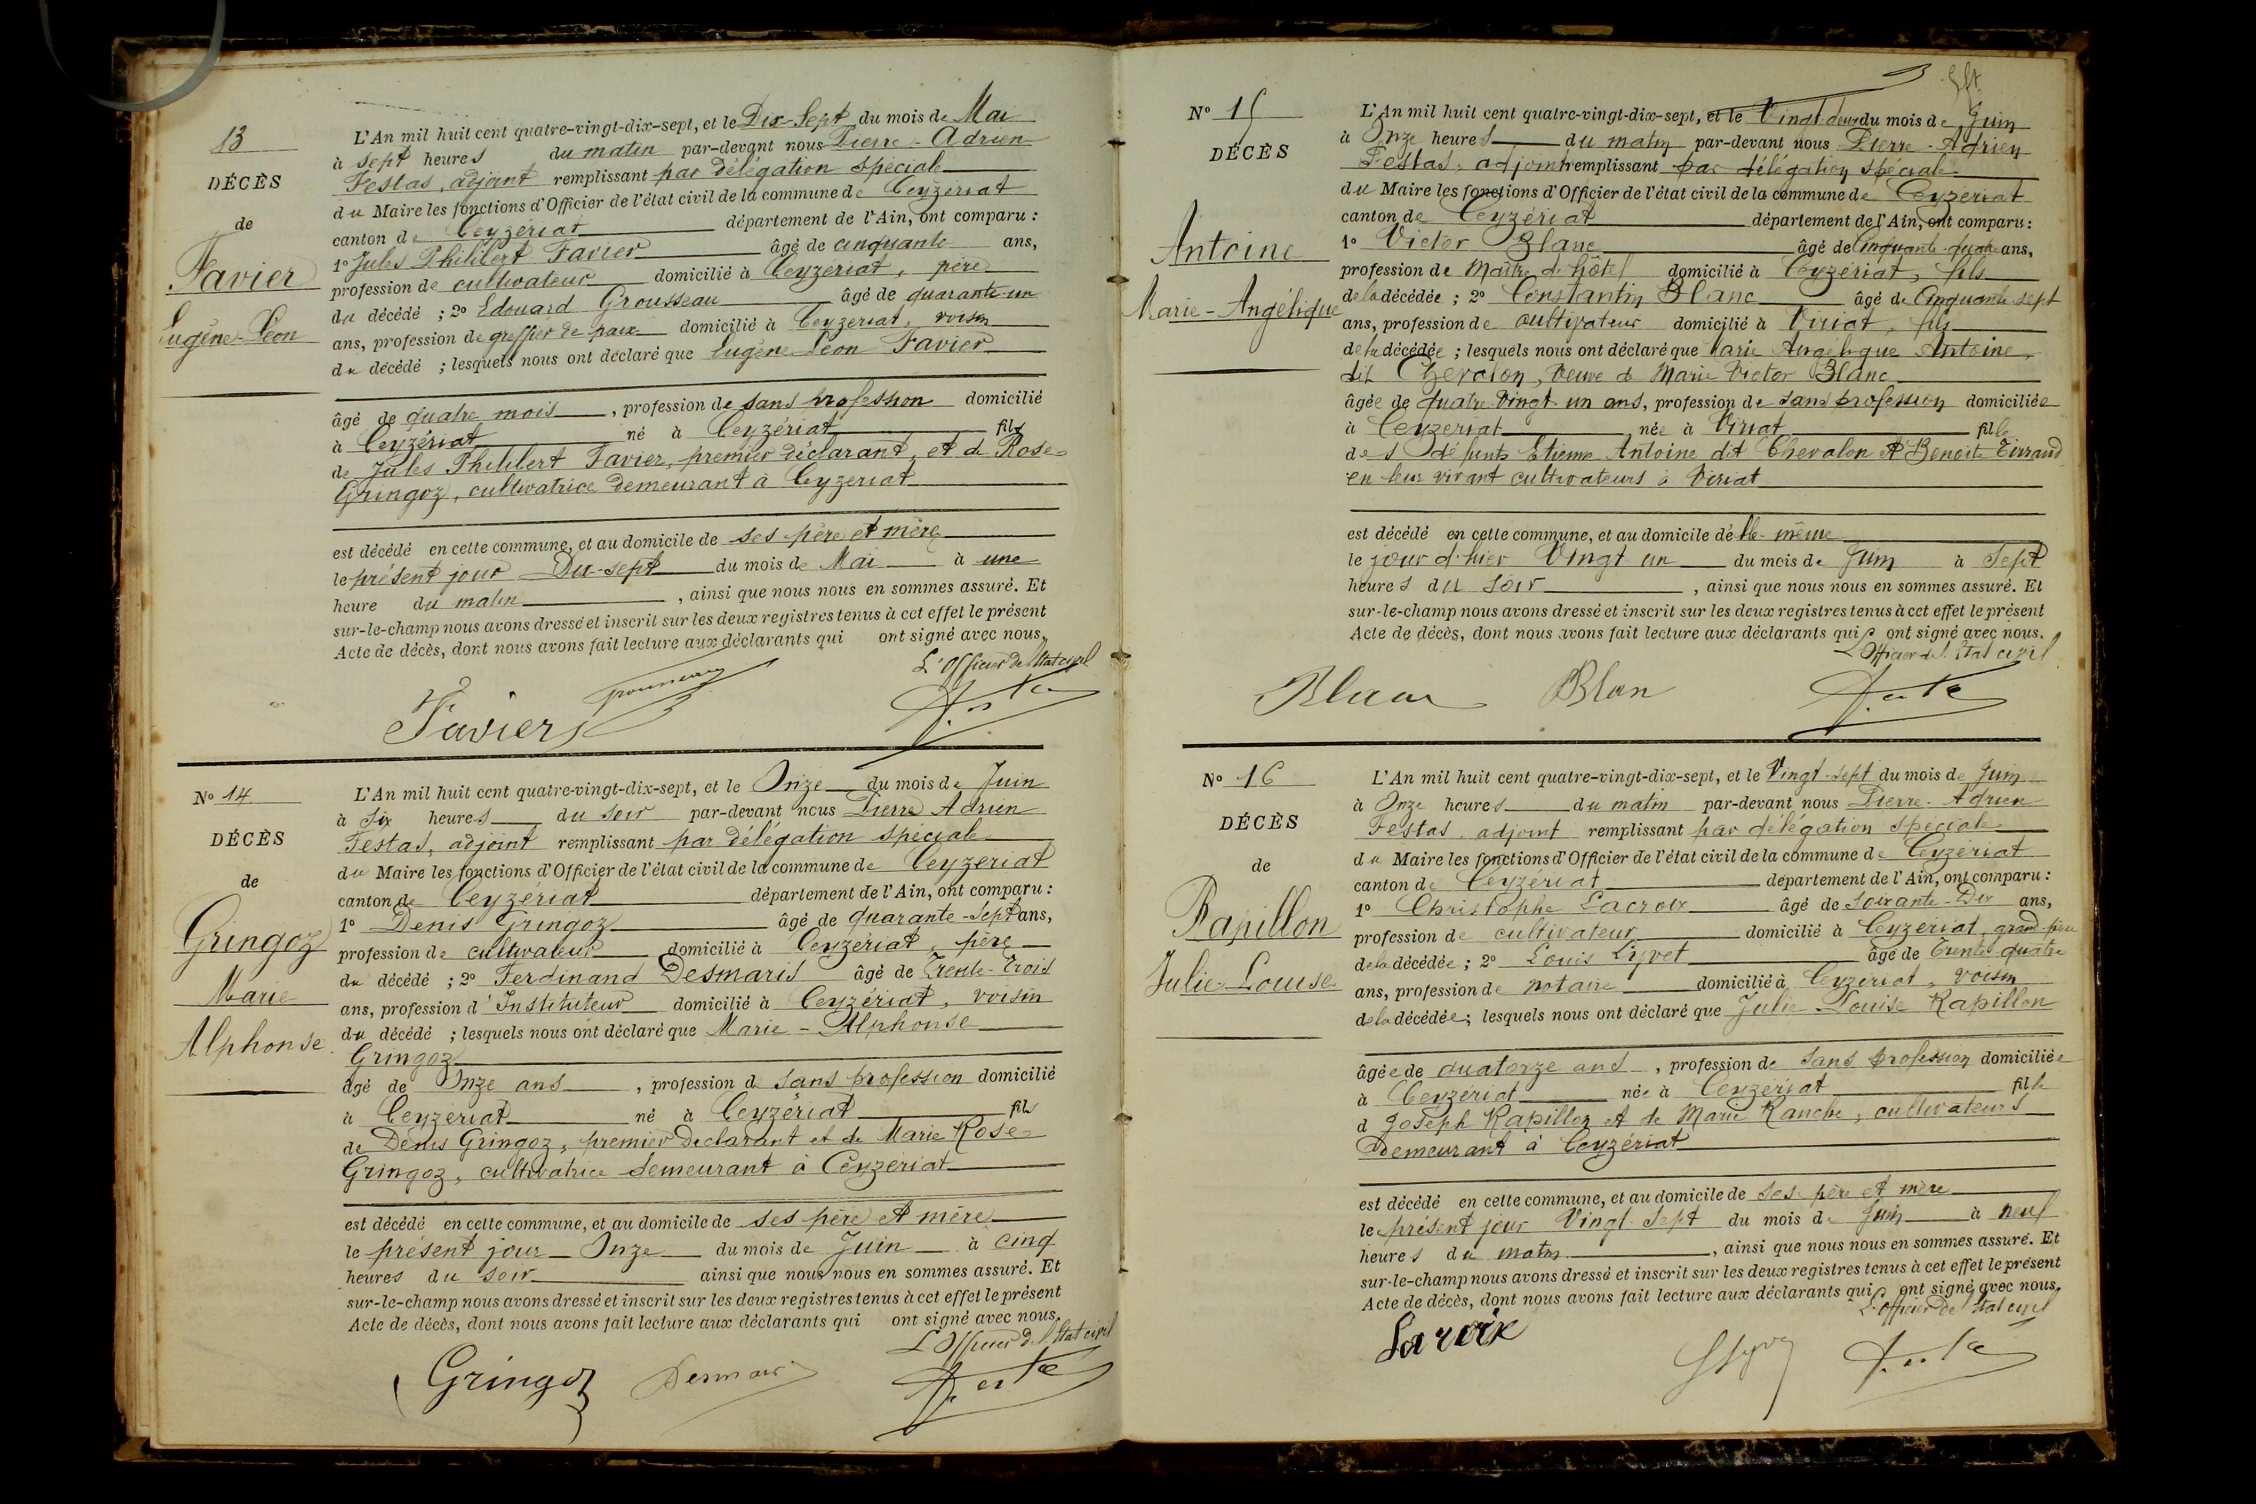 13
DÉCÈS
de
Favier
Eugène-Léon
L'An mil huit cent quatre-vingt-dix-sept, et le Dix-Sept du mois de Mai
à sept heures du matin par-devant nous Pierre-Adrien
Festas, adjoint remplissant par délégation spéciale
du Maire les fonctions d'Officier de l'état civil de la commune de Ceyzériat
canton de Ceyzériat département de l'Ain, ont comparu :
1º Jules Philibert Favier âgé de cinquante ans,
profession de cultivateur domicilié à Ceyzériat, père
du décédé ; 2º Edouard Grousseau âgé de quarante-un
ans, profession de greffier de paix domicilié à Ceyzériat, voisin
du décédé ; lesquels nous ont déclaré que Eugène Léon Favier
âgé de quatre mois, profession de sans profession domicilié
à Ceyzériat né à Ceyzériat fils
de Jules Philibert Favier, premier déclarant, et de Rose
Gringoz, cultivatrice demeurant à Ceyzériat
est décédé en cette commune, et au domicile de ses père et mère
le présent jour Dix-sept du mois de Mai à une
heure du matin, ainsi que nous nous en sommes assuré. Et
sur-le-champ nous avons dressé et inscrit sur les deux registres tenus à cet effet le présent
Acte de décès, dont nous avons fait lecture aux déclarants qui ont signé avec nous.
L'Officier de l'Etat civil
Favier
Nº 14
DÉCÈS
de
Gringoz
Marie
Alphonse
L'An mil huit cent quatre-vingt-dix-sept, et le Onze du mois de Juin
à six heures du soir par-devant nous Pierre Adrien
Festas, adjoint remplissant par délégation spéciale
du Maire les fonctions d'Officier de l'état civil de la commune de Ceyzeriat
canton de Ceyzériat département de l'Ain, ont comparu :
1º Denis Gringoz âgé de quarante-sept ans,
profession de cultivateur domicilié à Ceyzériat, père
du décédé ; 2º Ferdinand Desmaris âgé de Trente-Trois
ans, profession d'Instituteur domicilié à Ceyzériat, voisin
du décédé ; lesquels nous ont déclaré que Marie-Alphonse
Gringoz
âgé de Onze ans, profession d sans profession domicilié
à Ceyzeriat né à Ceyzériat fils
de Denis Gringoz, premier declarant et de Marie Rose
Gringoz, cultivatrice demeurant à Ceyzériat
est décédé en cette commune, et au domicile de ses père et mère
le présent jour Onze du mois de Juin à cinq
heures du soir ainsi que nous nous en sommes assuré. Et
sur-le-champ nous avons dressé et inscrit sur les deux registres tenus à cet effet le présent
Acte de décès, dont nous avons fait lecture aux déclarants qui ont signé avec nous.
L'Officier de l'Etat civil
Gringoz
Nº 15
DÉCÈS
Antoine
Marie-Angélique
L'An mil huit cent quatre-vingt-dix-sept, et le Vingt-deux du mois de Juin
à Onze heures du matin par-devant nous Pierre-Adrien
Festas, adjoint remplissant par délégation spéciale
du Maire les fonctions d'Officier de l'état civil de la commune de Ceyzeriat
canton de Ceyzériat département de l'Ain, ont comparu :
1º Victor Blanc âgé de Cinquante-quatre ans,
profession de Maître d'hôtel domicilié à Ceyzériat, fils
de la décédée ; 2º Constantin Blanc âgé de Cinquante sept
ans, profession de cultivateur domicilié à Viriat, fils
de la décédée ; lesquels nous ont déclaré que Marie Angélique Antoine,
dit Chevalon, Veuve de Marie Victor Blanc
âgée de quatre-vingt un ans, profession de sans profession domiciliée
à Ceyzeriat née à Viriat fille
des défunts Etienne Antoine dit Chevalon et Benoite Tirrand
en leur vivant cultivateurs à Viriat
est décédé en cette commune, et au domicile d'elle-même
le jour d'hier Vingt un du mois de Juin à sept
heures du soir, ainsi que nous nous en sommes assuré. Et
sur-le-champ nous avons dressé et inscrit sur les deux registres tenus à cet effet le présent
Acte de décès, dont nous avons fait lecture aux déclarants qui ont signé avec nous.
L'Officier de l'Etat civil
Blanc Blan
Nº 16
DÉCÈS
de
Rapillon
Julie-Louise
L'An mil huit cent quatre-vingt-dix-sept, et le Vingt-sept du mois de Juin
à Onze heures du matin par-devant nous Pierre-Adrien
Festas, adjoint remplissant par délégation spéciale
du Maire les fonctions d'Officier de l'état civil de la commune de Ceyzériat
canton de Ceyzériat département de l'Ain, ont comparu :
1º Christophe Lacroix âgé de soixante-Dix ans,
profession de cultivateur domicilié à Ceyzériat, grand père
de la décédée ; 2º Louis Liyvet âgé de Trente quatre
ans, profession de notaire domicilié à Ceyzériat, voisin
de la décédée ; lesquels nous ont déclaré que Julie Louise Rapillon
âgée de quatorze ans, profession de sans profession domiciliée
à Ceyzériat née à Ceyzériat fille
d Joseph Rapillon et de Marie Ranche, cultivateurs
Demeurant à Ceyzériat
est décédé en cette commune, et au domicile de ses père et mère
le présent jour Vingt sept du mois de Juin à neuf
heures du matin, ainsi que nous nous en sommes assuré. Et
sur-le-champ nous avons dressé et inscrit sur les deux registres tenus à cet effet le présent
Acte de décès, dont nous avons fait lecture aux déclarants qui ont signé avec nous.
L'Officier de l'Etat civil
Laroix